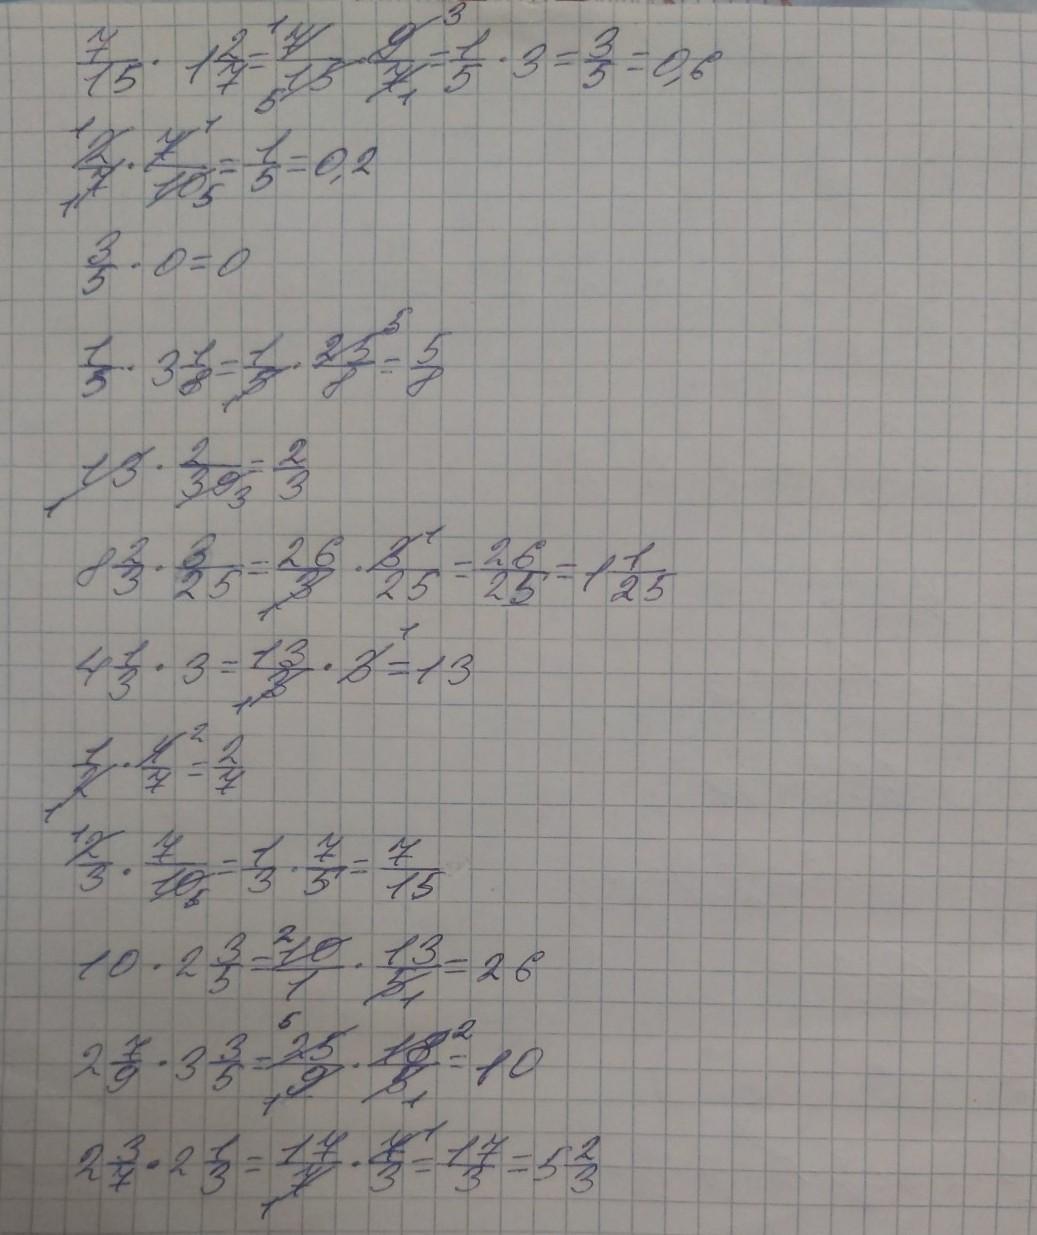 7/15 · 1 2/7 = 7/15 · 9/7 = 1/5 · 3 = 3/5 = 0,6
2/7 · 7/10 = 1/5 = 0,2
3/5 · 0 = 0
1/5 · 3 1/8 = 1/5 · 25/8 = 5/8
13 · 2/39 = 2/3
8 2/3 · 3/25 = 26/3 · 3/25 = 26/25 = 1 1/25
4 1/3 · 3 = 13/3 · 3 = 13
1/2 · 4/7 = 2/7
2/3 · 7/10 = 1/3 · 7/5 = 7/15
10 · 2 3/5 = 10/1 · 13/5 = 26
2 7/9 · 3 3/5 = 25/9 · 18/5 = 10
2 3/7 · 2 1/3 = 17/7 · 7/3 = 17/3 = 5 2/3